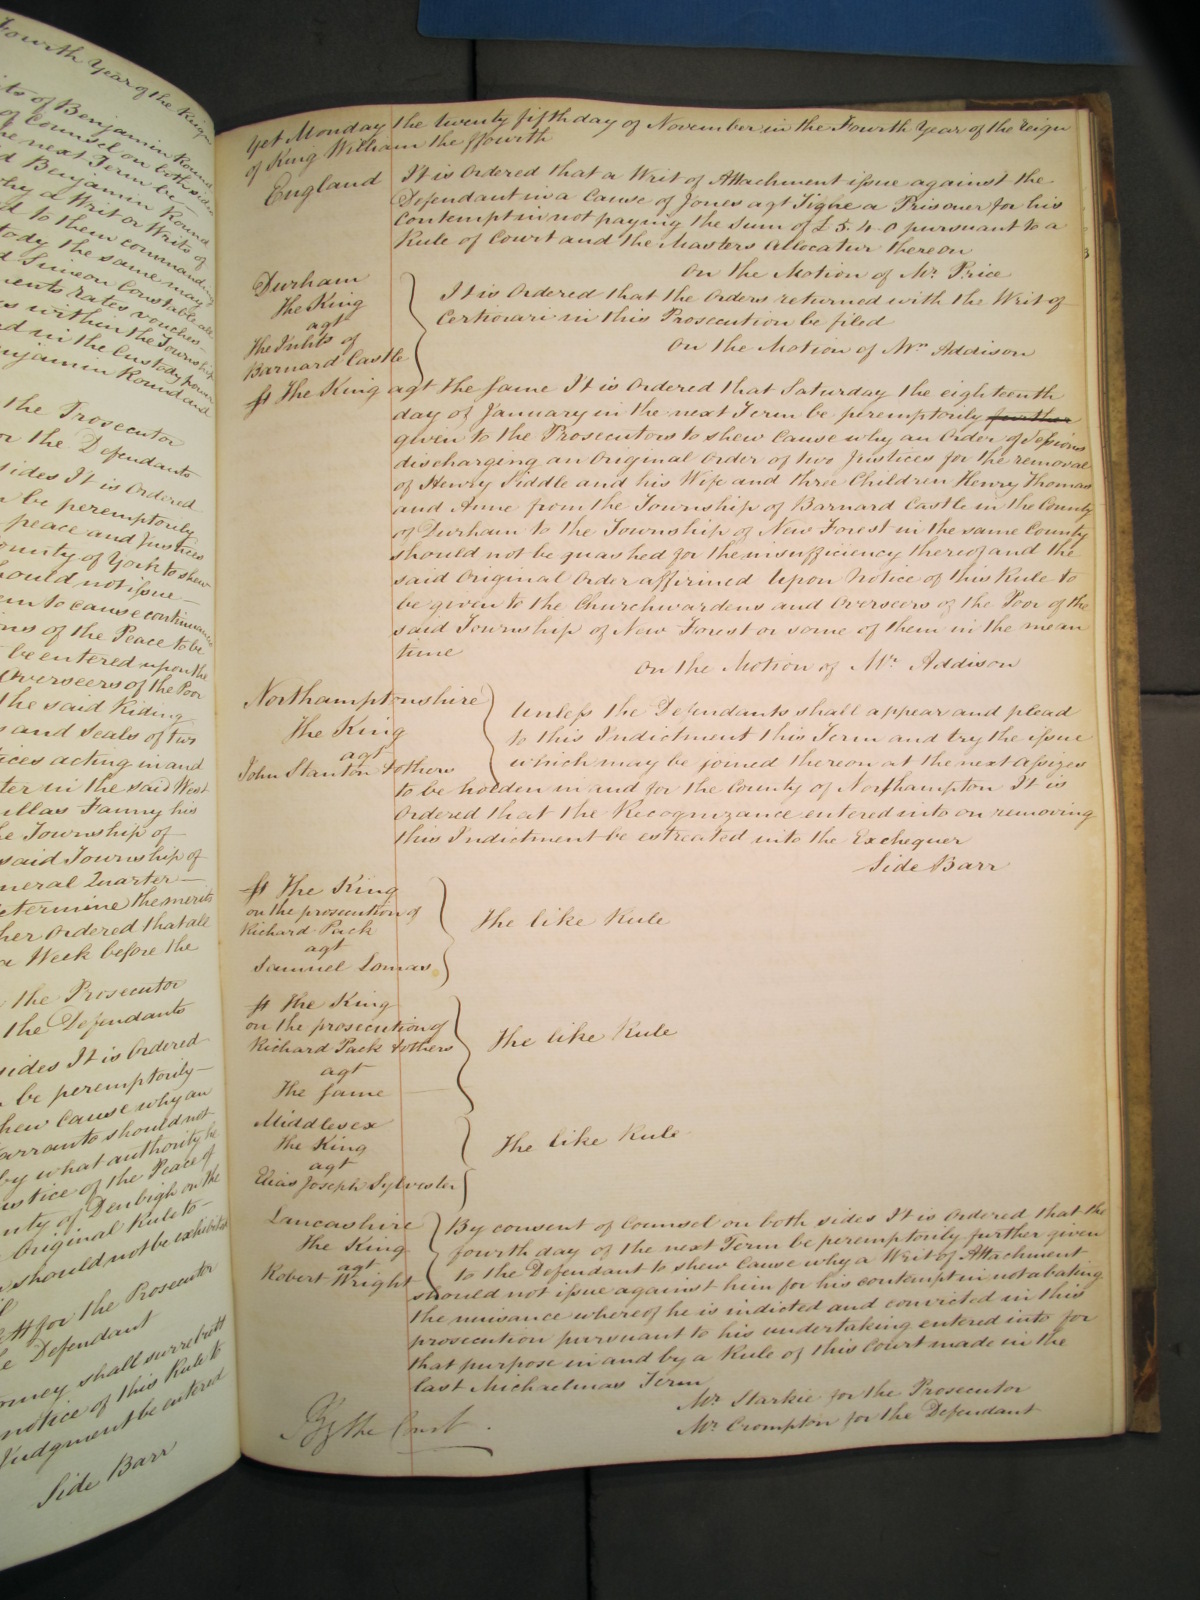 Fourth Year of the Reign
its of Benjamin Round
of Counsel on both sides
he next Term be
d Benjamin Round
why a Writ or Writs of
d to them commanding
tody the same may
d Simeon Constable all
ments rates vouchers
s within the Township
nd in the Custody power
enjamin Round and
the Prosecutor
or the Defendants
sides It is Ordered
n be peremptorily
peace and Justices
ounty of York to shew
hould not issue
em to cause continuances
ons of the Peace to be
be entered upon the
Overseers of the Poor
the said Riding
s and Seals of two
ices acting in and
ter in the said West
ullas Fanny his
he Township of
said Township of
neral Quarter
etermine the merits
her Ordered that all
a Week before the
the Prosecutor
the Defendants
sides It is Ordered
be peremptorily
hew Cause why an
arrants should not
by what authority he
ustice of the Peace of
nty of Denbigh on the
Original Rule to
n should not be exhibited
ett for the Prosecutor
e Defendant
orney shall surrebutt
notice of this Rule to
Judgment be entered
Side Barr
Yet Monday the twenty fifth day of November in the Fourth Year of the Reign
of King William the ffourth
England It is Ordered that a Writ of Attachment issue against the
Defendant in a Cause of Jones agt Tigne a Prisoner for his
Contempt in not paying the Sum of £5.4.0 pursuant to a
Rule of Court and the Masters Allocatur thereon
On the Motion of Mr. Price
Durham
The King
agt
The Inhts of
Barnard Castle
It is Ordered that the Orders returned with the Writ of
Certiorari in this Prosecution be filed
On the Motion of Mr. Addison
ss The King agt the same It is Ordered that Saturday the eighteenth
day of January in the next Term be peremptorily further
given to the Prosecutors to shew Cause why an Order of Sessions
discharging an Original Order of two Justices for the removal
of Henry Siddle and his Wife and three Children Henry Thomas
and Anne from the Township of Barnard Castle in the County
of Durham to the Township of New Forest in the same County
should not be quashed for the insufficiency thereof and the
said Original Order affirmed Upon Notice of this Rule to
be given to the Churchwardens and Overseers of the Poor of the
said Township of New Forest or some of them in the mean
time
On the Motion of Mr. Addison
Northamptonshire
The King
agt
John Stanton & others
Unless the Defendants shall appear and plead
to this Indictment this Term and try the issue
which may be joined thereon at the next assizes
to be holden in and for the County of Northampton It is
Ordered that the Recognizance entered into on removing
this Indictment be estreated into the Exchequer
Side Barr
ss The King
on the prosecution of
Richard Pack
agt
Samuel Lomas
The like Rule
ss The King
on the prosecution of
Richard Pack & others
agt
The same
The like Rule
Middlesex
The King
agt
Elias Joseph Sylvester
The like Rule
Lancashire
The King
agt
Robert Wright
By consent of Counsel on both sides It is Ordered that the
fourth day of the next Term be peremptorily further given
to the Defendant to shew Cause why a Writ of Attachment
should not issue against him for his contempt in not abating
the nuisance whereof he is indicted and convicted in this
prosecution pursuant to his undertaking entered into for
that purpose in and by a Rule of this Court made in the
last Michaelmas Term
Mr. Starkie for the Prosecutor
Mr. Crompton for the Defendant
By the Court.